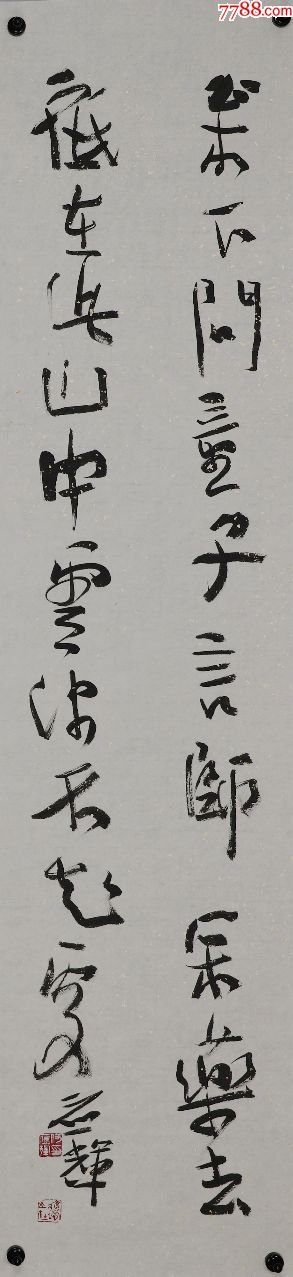 7788.com
松下問童子言師采藥去
祗在此山中雲深不知處 輝